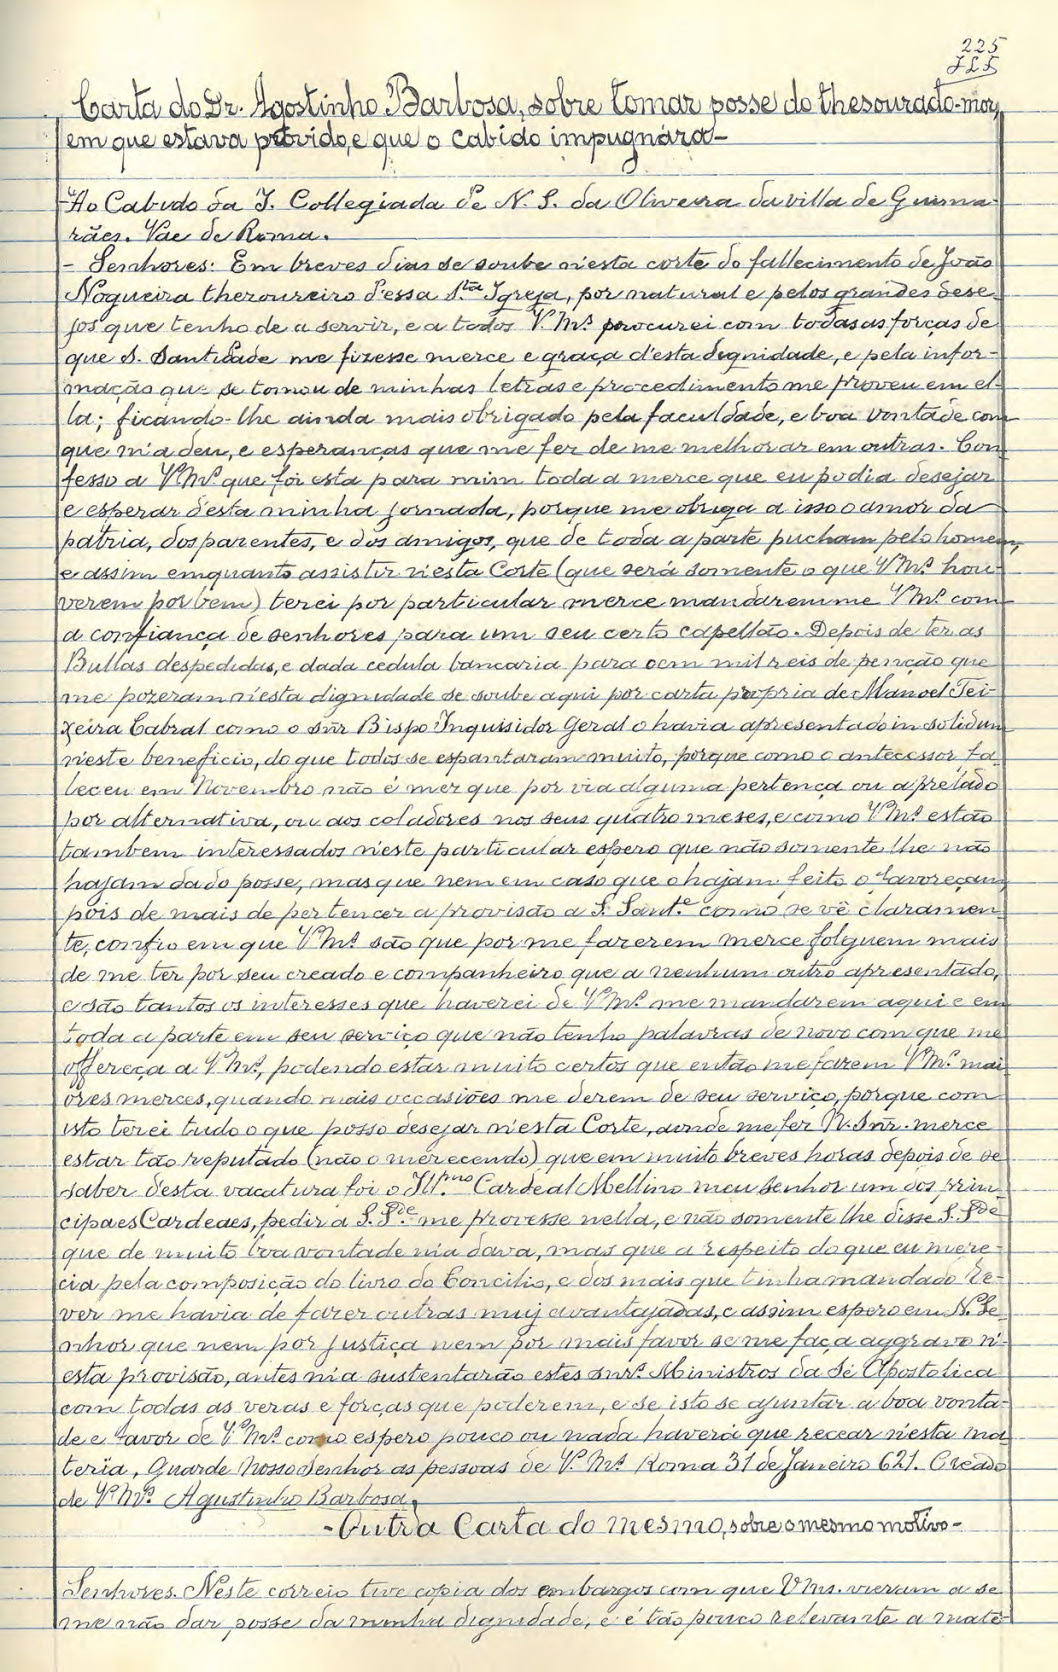 225
Carta do Dr. Agostinho Barbosa, sobre tomar posse do thesourado-mor,
em que estava provido, e que o cabido impugnára-
Ao Cabido da I. Collegiada de N. S. da Oliveira da villa de Guima-
rães. Vae de Roma.
- Senhores: Em breves dias se soube n'esta corte do fallecimento de João
Nogueira thezoureiro d'essa S.ta Igreja, por natural e pelos grandes dese-
jos que tenho de a servir, e a todos V. M.s procurei com todas as forças de
que S. Santidade me fizesse merce e graça d'esta dignidade, e pela infor-
mação que se tomou de minhas letras e procedimento me proveu em el-
la; ficando-lhe ainda mais obrigado pela faculdade, e boa vontade com
que m'a deu, e esperanças que me fez de me melhorar em outras. Con-
fesso a V. M.s que foi esta para mim toda a merce que eu podia desejar
e esperar d'esta minha jornada, porque me obriga a isso o amor da
patria, dos parentes, e dos amigos, que de toda a parte pucham pelo homem,
e assim emquanto assistir n'esta Corte (que será somente o que V. M.s hou-
verem por bem) terei por particular merce mandarem me V. M.s com
a confiança de senhores para um seu certo capellão. Depois de ter as
Bullas despedidas, e dada cedula bancaria para cem mil reis de penção que
me pozeram n'esta dignidade se soube aqui por carta propria de Manoel Tei-
xeira Cabral como o snr Bispo Inquisidor Geral o havia apresentado in solidum
n'este beneficio, do que todos se espantaram muito, porque como o antecessor fa-
leceu em Novembro não é mez que por via alguma pertença ou a prelado
por alternativa, ou aos coladores nos seus quatro meses, e como V. M.s estão
tambem interessados n'este particular espero que não somente lhe não
hajam dado posse, mas que nem em caso que o hajam feito o favoreçam,
pois de mais de pertencer a provisão a S. Sant.e como se vê claramen-
te, confio em que V. M.s são que por me fazerem merce folguem mais
de me ter por seu creado e companheiro que a nenhum outro apresentado,
e são tantos os interesses que haverei de V. M.s me mandarem aqui e em
toda a parte em seu serviço que não tenho palavras de novo com que me
offereça a V. M.s, podendo estar muito certos que então me fazem V. M.s mai-
ores merces, quando mais occasiões me derem de seu serviço, porque com
isto terei tudo o que posso desejar n'esta Corte, aonde me fez N. Snr. merce
estar tão reputado (não o merecendo) que em muito breves horas depois de se
saber d'esta vacatura foi o Ill.mo Cardeal Mellino meu senhor um dos prin-
cipaes Cardeaes, pedir a S. S.de me provesse nella, e não somente lhe disse S. S.de
que de muito boa vontade m'a dava, mas que a respeito do que eu mere-
cia pela composição do livro do Concilio, e dos mais que tinha mandado re-
ver me havia de fazer outras muj avantajadas, e assim espero em N. Se-
nhor que nem por justiça nem por mais favor se me faça aggravo n'-
esta provisão, antes m'a sustentarão estes snr.s Ministros da Sé Apostolica
com todas as veras e forças que poderem, e se isto se ajuntar a boa vonta-
de e favor de V. M.s como espero pouco ou nada haverá que recear n'esta ma-
teria, Guarde Nosso Senhor as pessoas de V. M.s Roma 31 de Janeiro 621. Creado
de V. M.s Agustinho Barbosa.
-Outra Carta do mesmo, sobre o mesmo motivo-
Senhores. Neste correio tive copia dos embargos com que V. Ms. vieram a se
me não dar posse da minha dignidade, e é tão pouco relevante a maté-